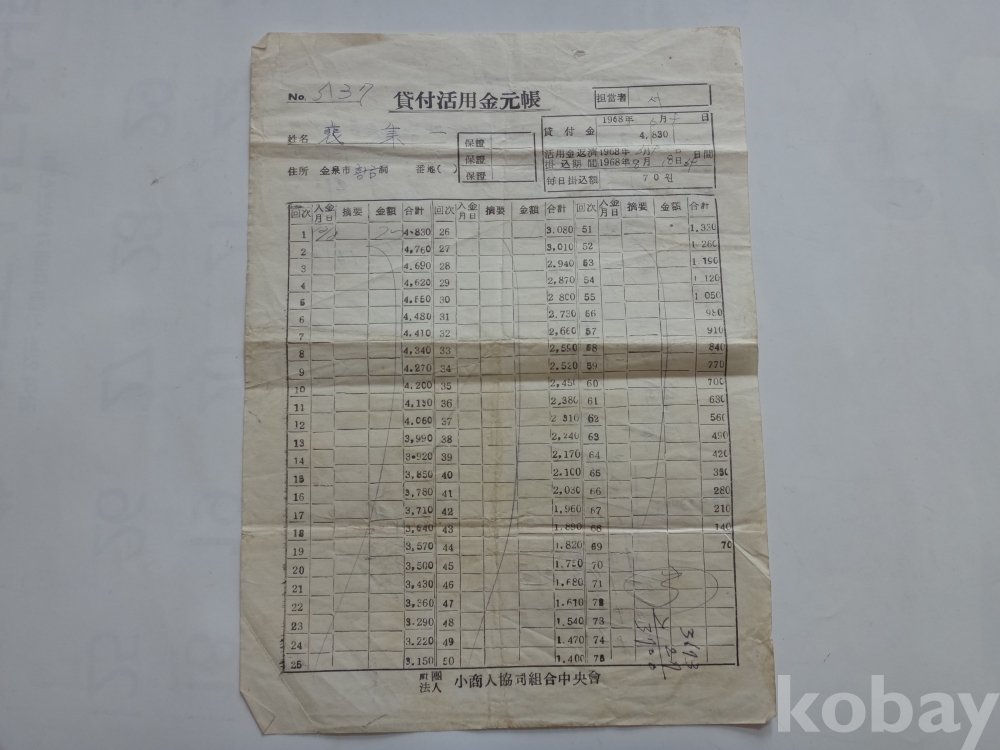 No. 5137
貸付活用金元帳
担當者
姓名 裵 集 一
保證
保證
保證
貸付金 1968年 6月 日
4,830
活用金返済 1968年 日
掛込期間 1968年 8月 18日 日間
毎日掛込額 70원
住所 金泉市 洞 番地( )
回次 入金月日 摘要 金額 合計 回次 入金月日 摘要 金額 合計 回次 入金月日 摘要 金額 合計
1 4.830 26 3.080 51 1.330
2 4,760 27 3,010 52 1 260
3 4.690 28 2,940 53 1 190
4 4,620 29 2,870 54 1 120
5 4.550 30 2 800 55 1 050
6 4,480 31 2.730 56 980
7 4.410 32 2,660 57 910
8 4,340 33 2,590 58 840
9 4.270 34 2.520 59 770
10 4.200 35 2,450 60 700
11 4,130 36 2,380 61 630
12 4.060 37 2 310 62 560
13 3,990 38 2,240 63 490
14 3.920 39 2,170 64 420
15 3,850 40 2.100 65 350
16 3,780 41 2,030 66 280
17 3,710 42 1,960 67 210
18 3,640 43 1.890 68 140
19 3,570 44 1.820 69 70
20 3,500 45 1.750 70
21 3,430 46 1,680 71
22 3,360 47 1.610 72
23 3.290 48 1.540 73
24 3.220 49 1.470 74
25 3.150 50 1.400 75
社團法人 小商人協同組合中央會
kobay